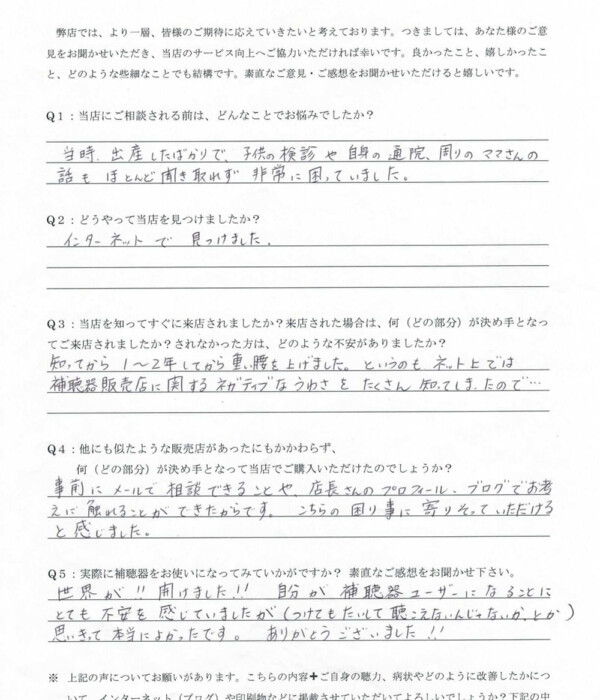 弊店では、より一層、皆様のご期待に応えていきたいと考えております。つきましては、あなた様のご意
見をお聞かせいただき、当店のサービス向上へご協力いただければ幸いです。良かったこと、嬉しかったこ
と、どのような些細なことでも結構です。素直なご意見・ご感想をお聞かせいただけると嬉しいです。
Q1：当店にご相談される前は、どんなことでお悩みでしたか？
当時、出産したばかりで、子供の検診や自身の通院、周りのママさんの
話もほとんど聞き取れず 非常に困っていました。
Q2：どうやって当店を見つけましたか？
インターネットで見つけました。
Q3：当店を知ってすぐに来店されましたか？来店された場合は、何（どの部分）が決め手となっ
てご来店されましたか？されなかった方は、どのような不安がありましたか？
知ってから 1～2年してから重い腰を上げました。というのも ネット上では
補聴器販売店に関するネガティブなうわさを たくさん知ってしまったので…
Q4：他にも似たような販売店があったにもかかわらず、
何（どの部分）が決め手となって当店でご購入いただけたのでしょうか？
事前にメールで相談できることや、店長さんのプロフィール、ブログでお考
えに触れることができたからです。 こちらの困り事に寄りそっていただける
と感じました。
Q5：実際に補聴器をお使いになってみていかがですか？ 素直なご感想をお聞かせ下さい。
世界が!! 開けました!! 自分が補聴器ユーザーになることに
とても不安を感じていましたが（つけてもたいして聴こえないんじゃないか、とか）
思いきって本当によかったです。 ありがとうございました!!
※ 上記の声についてお願いがあります。こちらの内容+ご自身の聴力、病状やどのように改善したかにつ
いて、インターネット（ブログ）や印刷物などに掲載させていただいてよろしいでしょうか？下記の中